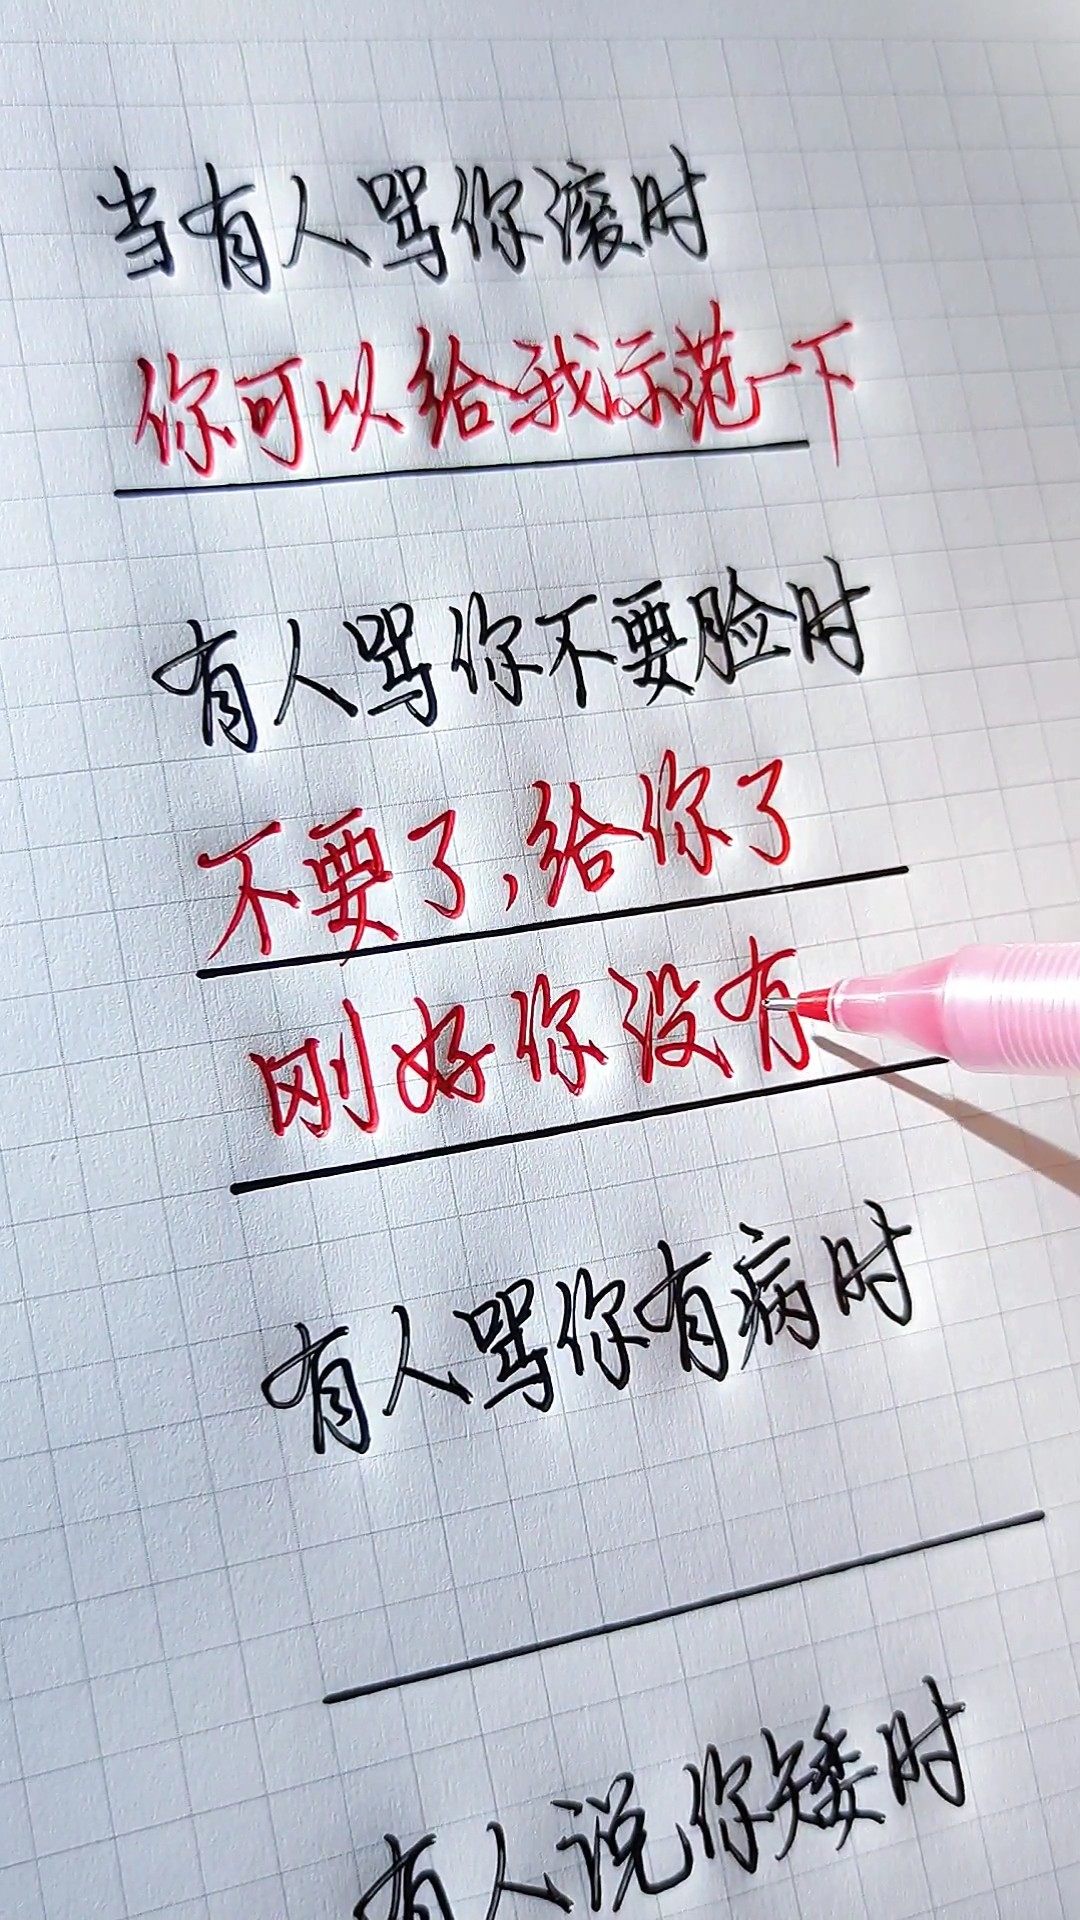 当有人骂你滚时
你可以给我示范一下
有人骂你不要脸时
不要了,给你了
刚好你没有
有人骂你有病时
有人说你矮时